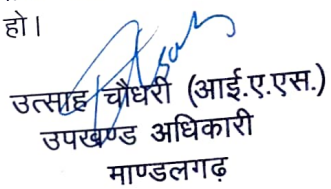 हो।
उत्साह चौधरी (आई.ए.एस.)
उपखण्ड अधिकारी
माण्डलगढ़